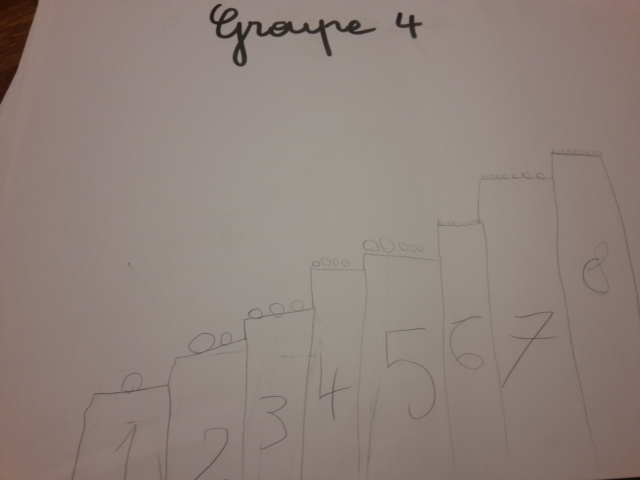 Groupe 4
1 2 3 4 5 6 7 8